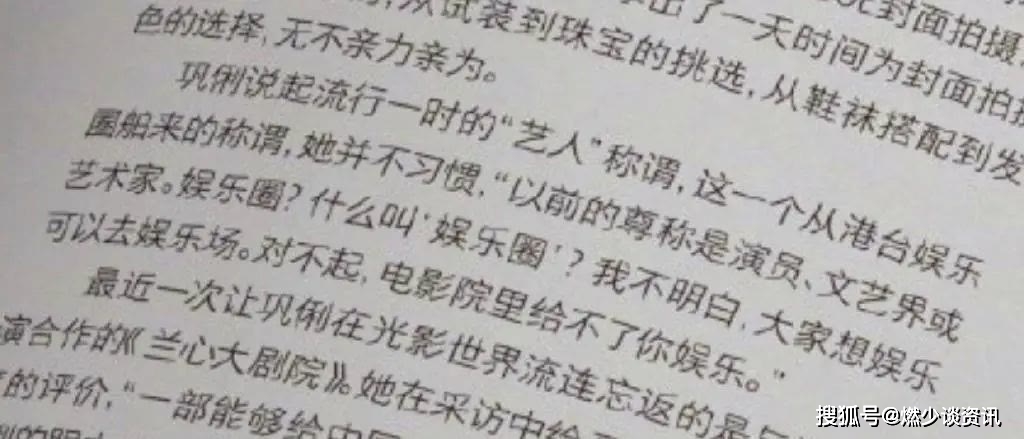 出了一天时间为封面拍摄
从试装到珠宝的挑选,从鞋袜搭配到发
色的选择,无不亲力亲为。
巩俐说起流行一时的“艺人”称谓,这一个从港台娱乐
圈舶来的称谓,她并不习惯,“以前的尊称是演员、文艺界或
艺术家。娱乐圈?什么叫‘娱乐圈’?我不明白,大家想娱乐
可以去娱乐场。对不起,电影院里给不了你娱乐。”
最近一次让巩俐在光影世界流连忘返的是与
演合作的《兰心大剧院》。她在采访中给
的评价,“一部能够给中国
搜狐号@燃少谈资讯